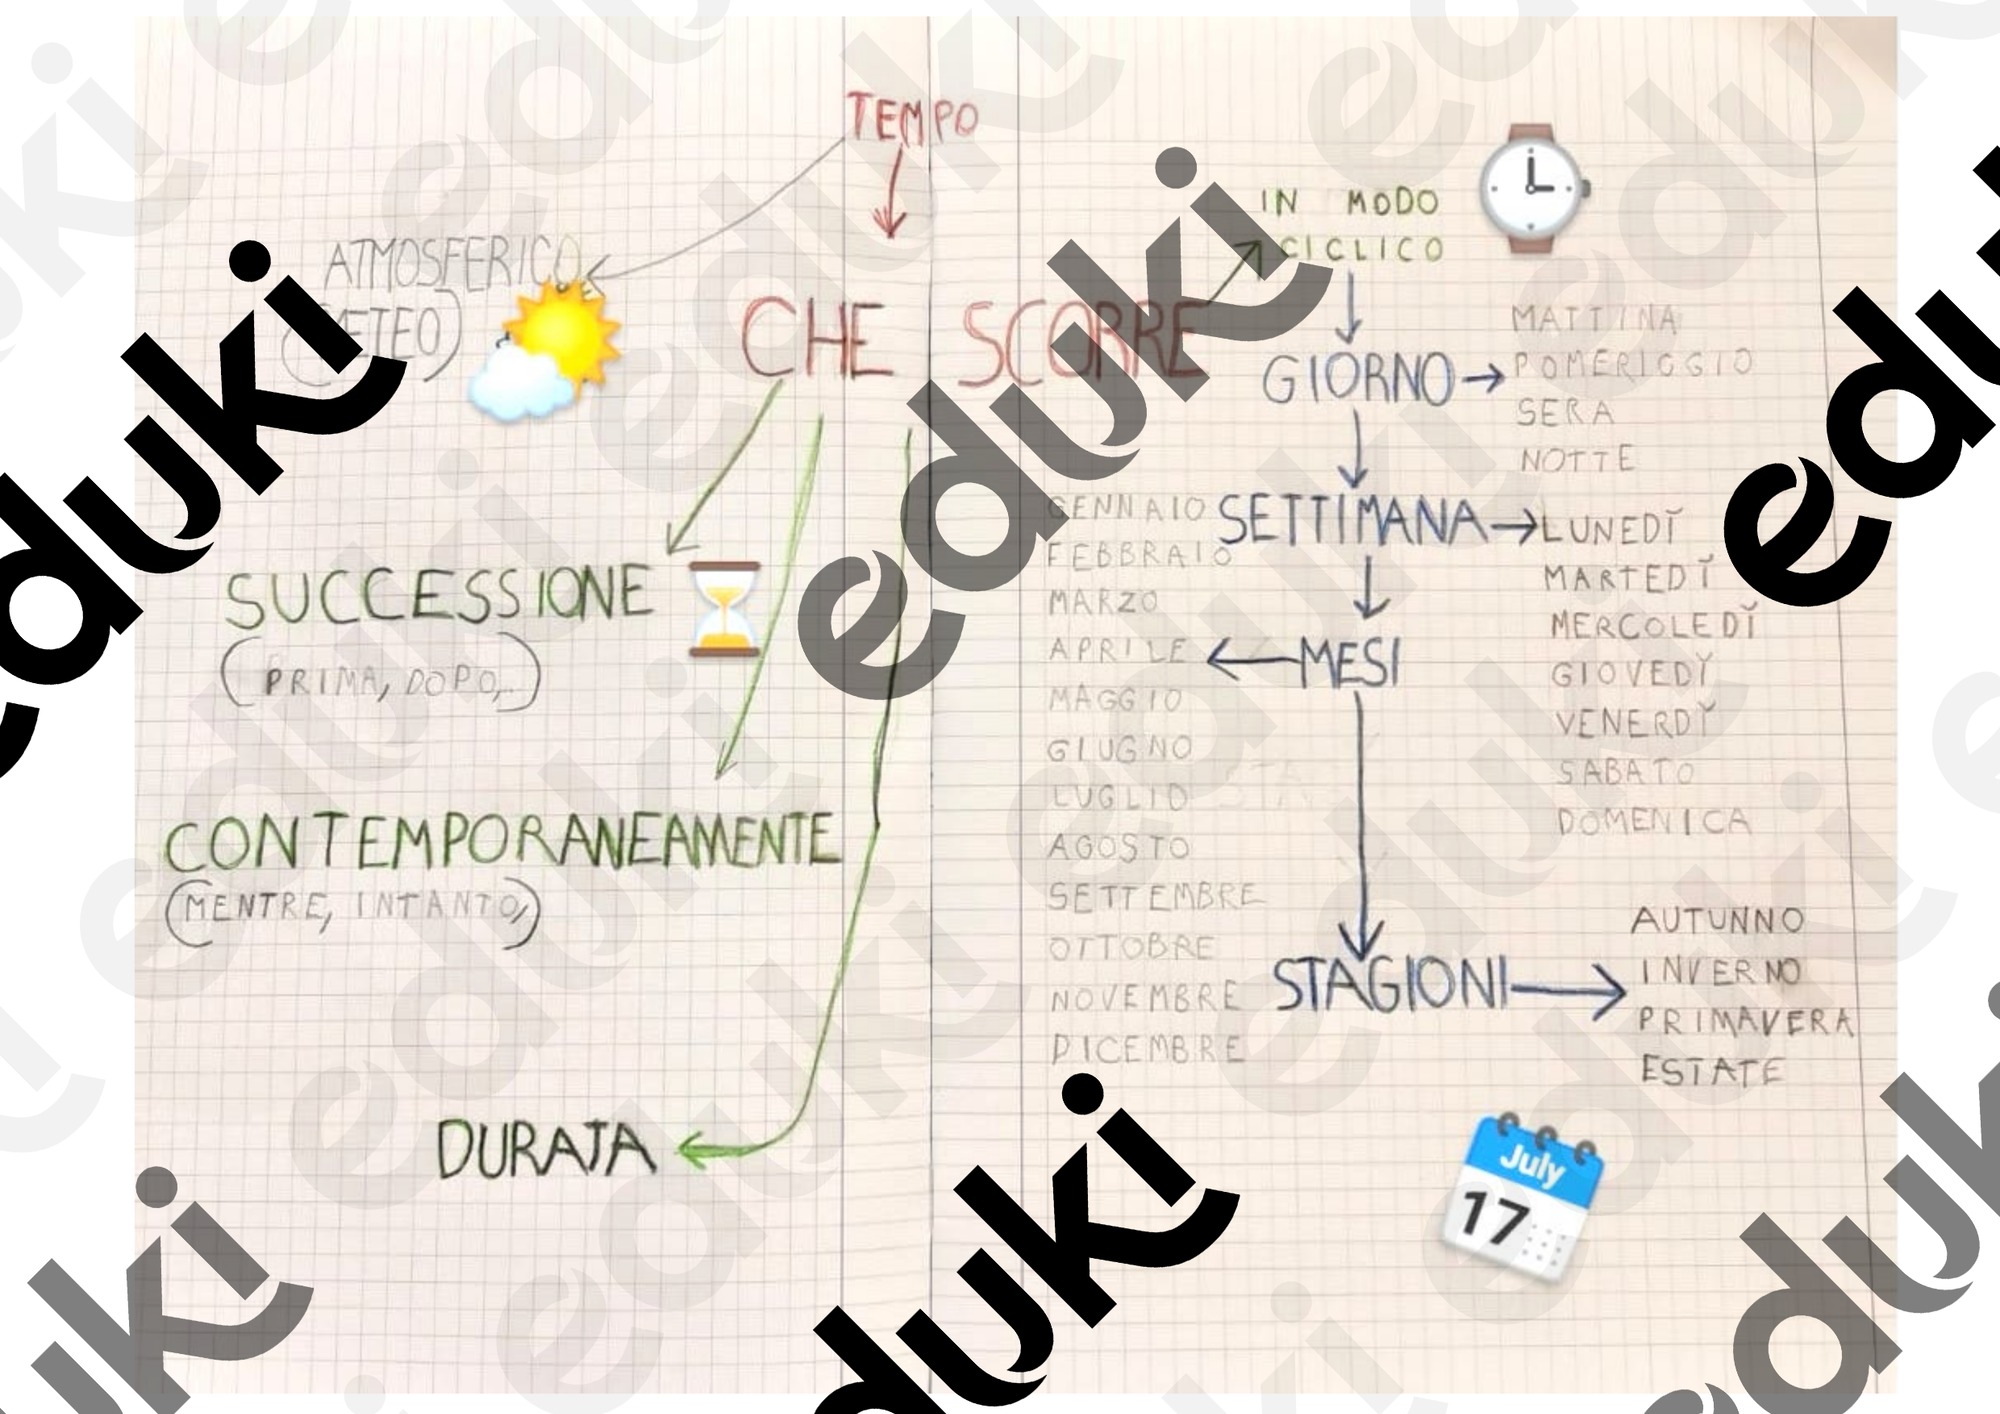 TEMPO
ATMOSFERICO
(METEO)
CHE SCORRE
IN MODO
CICLICO
GIORNO
MATTINA
POMERIGGIO
SERA
NOTTE
SETTIMANA
LUNEDÌ
MARTEDÌ
MERCOLEDÌ
GIOVEDÌ
VENERDÌ
SABATO
DOMENICA
MESI
GENNAIO
FEBBRAIO
MARZO
APRILE
MAGGIO
GIUGNO
LUGLIO
AGOSTO
SETTEMBRE
OTTOBRE
NOVEMBRE
DICEMBRE
STAGIONI
AUTUNNO
INVERNO
PRIMAVERA
ESTATE
SUCCESSIONE
(PRIMA, DOPO,..)
CONTEMPORANEAMENTE
(MENTRE, INTANTO,)
DURATA
July
17
eduki
eduki
eduki
eduki
eduki
eduki